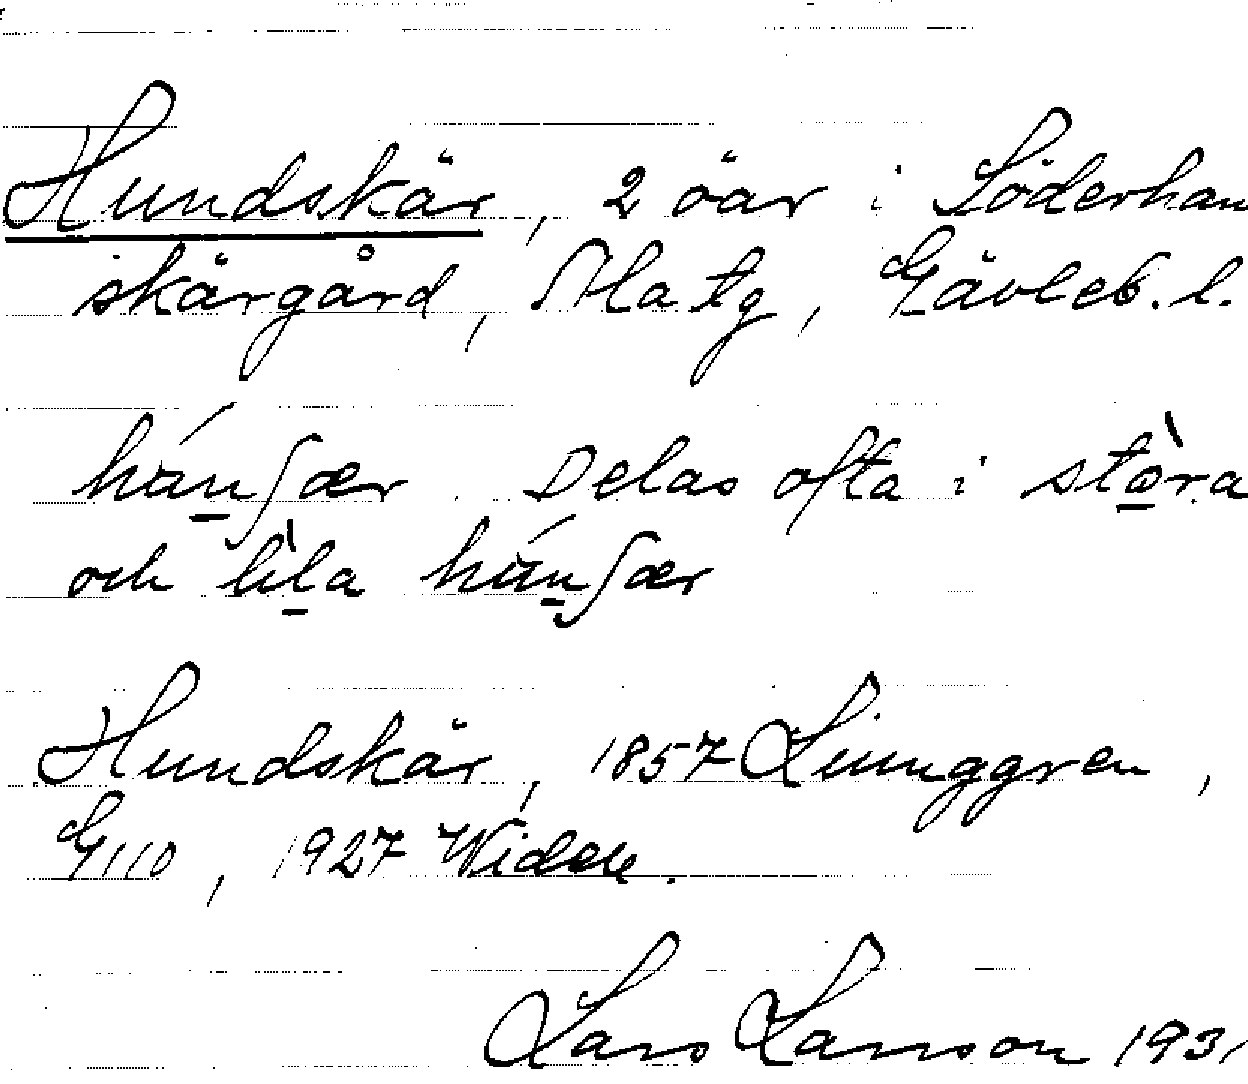 Hundskär, 2 öar i Söderham
skärgård, Ala tg, Gävleb. l.
húnʃær. Delas ofta i stòra
och lìla húnʃær
Hundskär, 1857 Ljunggren,
G110, 1927 Widde.
Lars Larsson 193